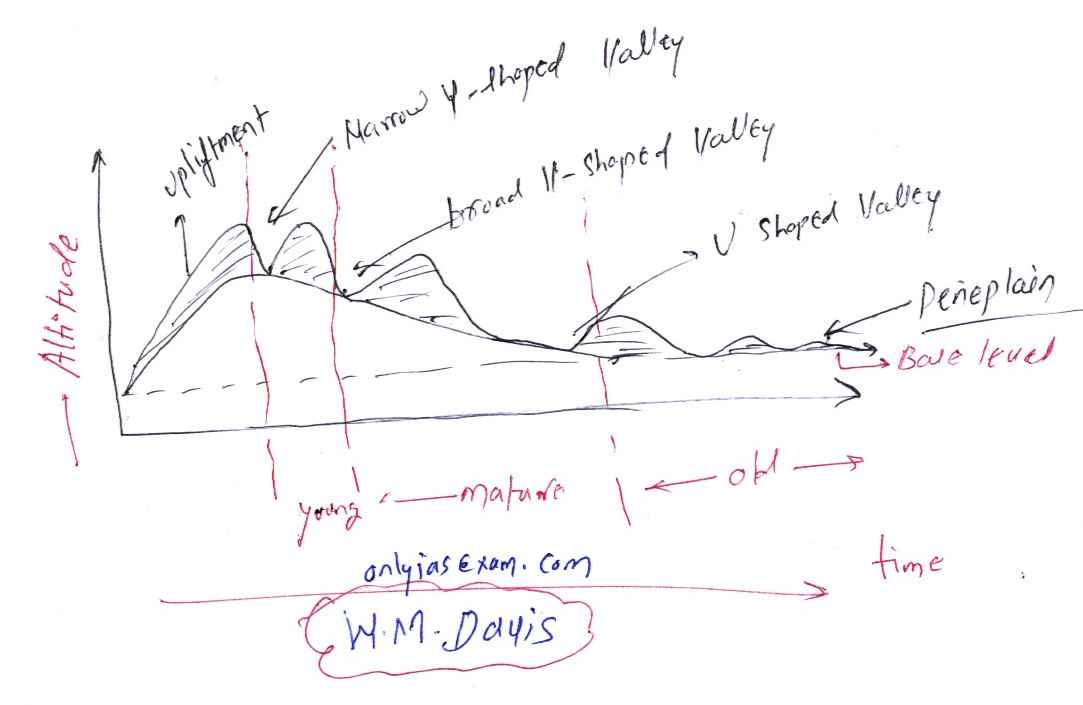 upliftment
Narrow V-shaped Valley
broad V-shaped Valley
U shaped Valley
Peneplain
Base level
Altitude
young
mature
old
time
onlyiasexam.com
W.M.Davis